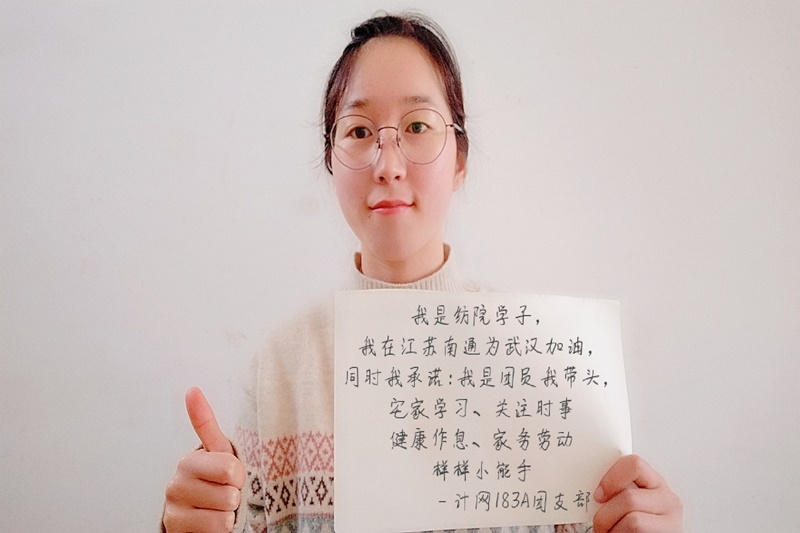 我是纺院学子,
我在江苏南通为武汉加油,
同时我承诺:我是团员我带头,
宅家学习、关注时事
健康作息、家务劳动
样样小能手
-计网183A团支部